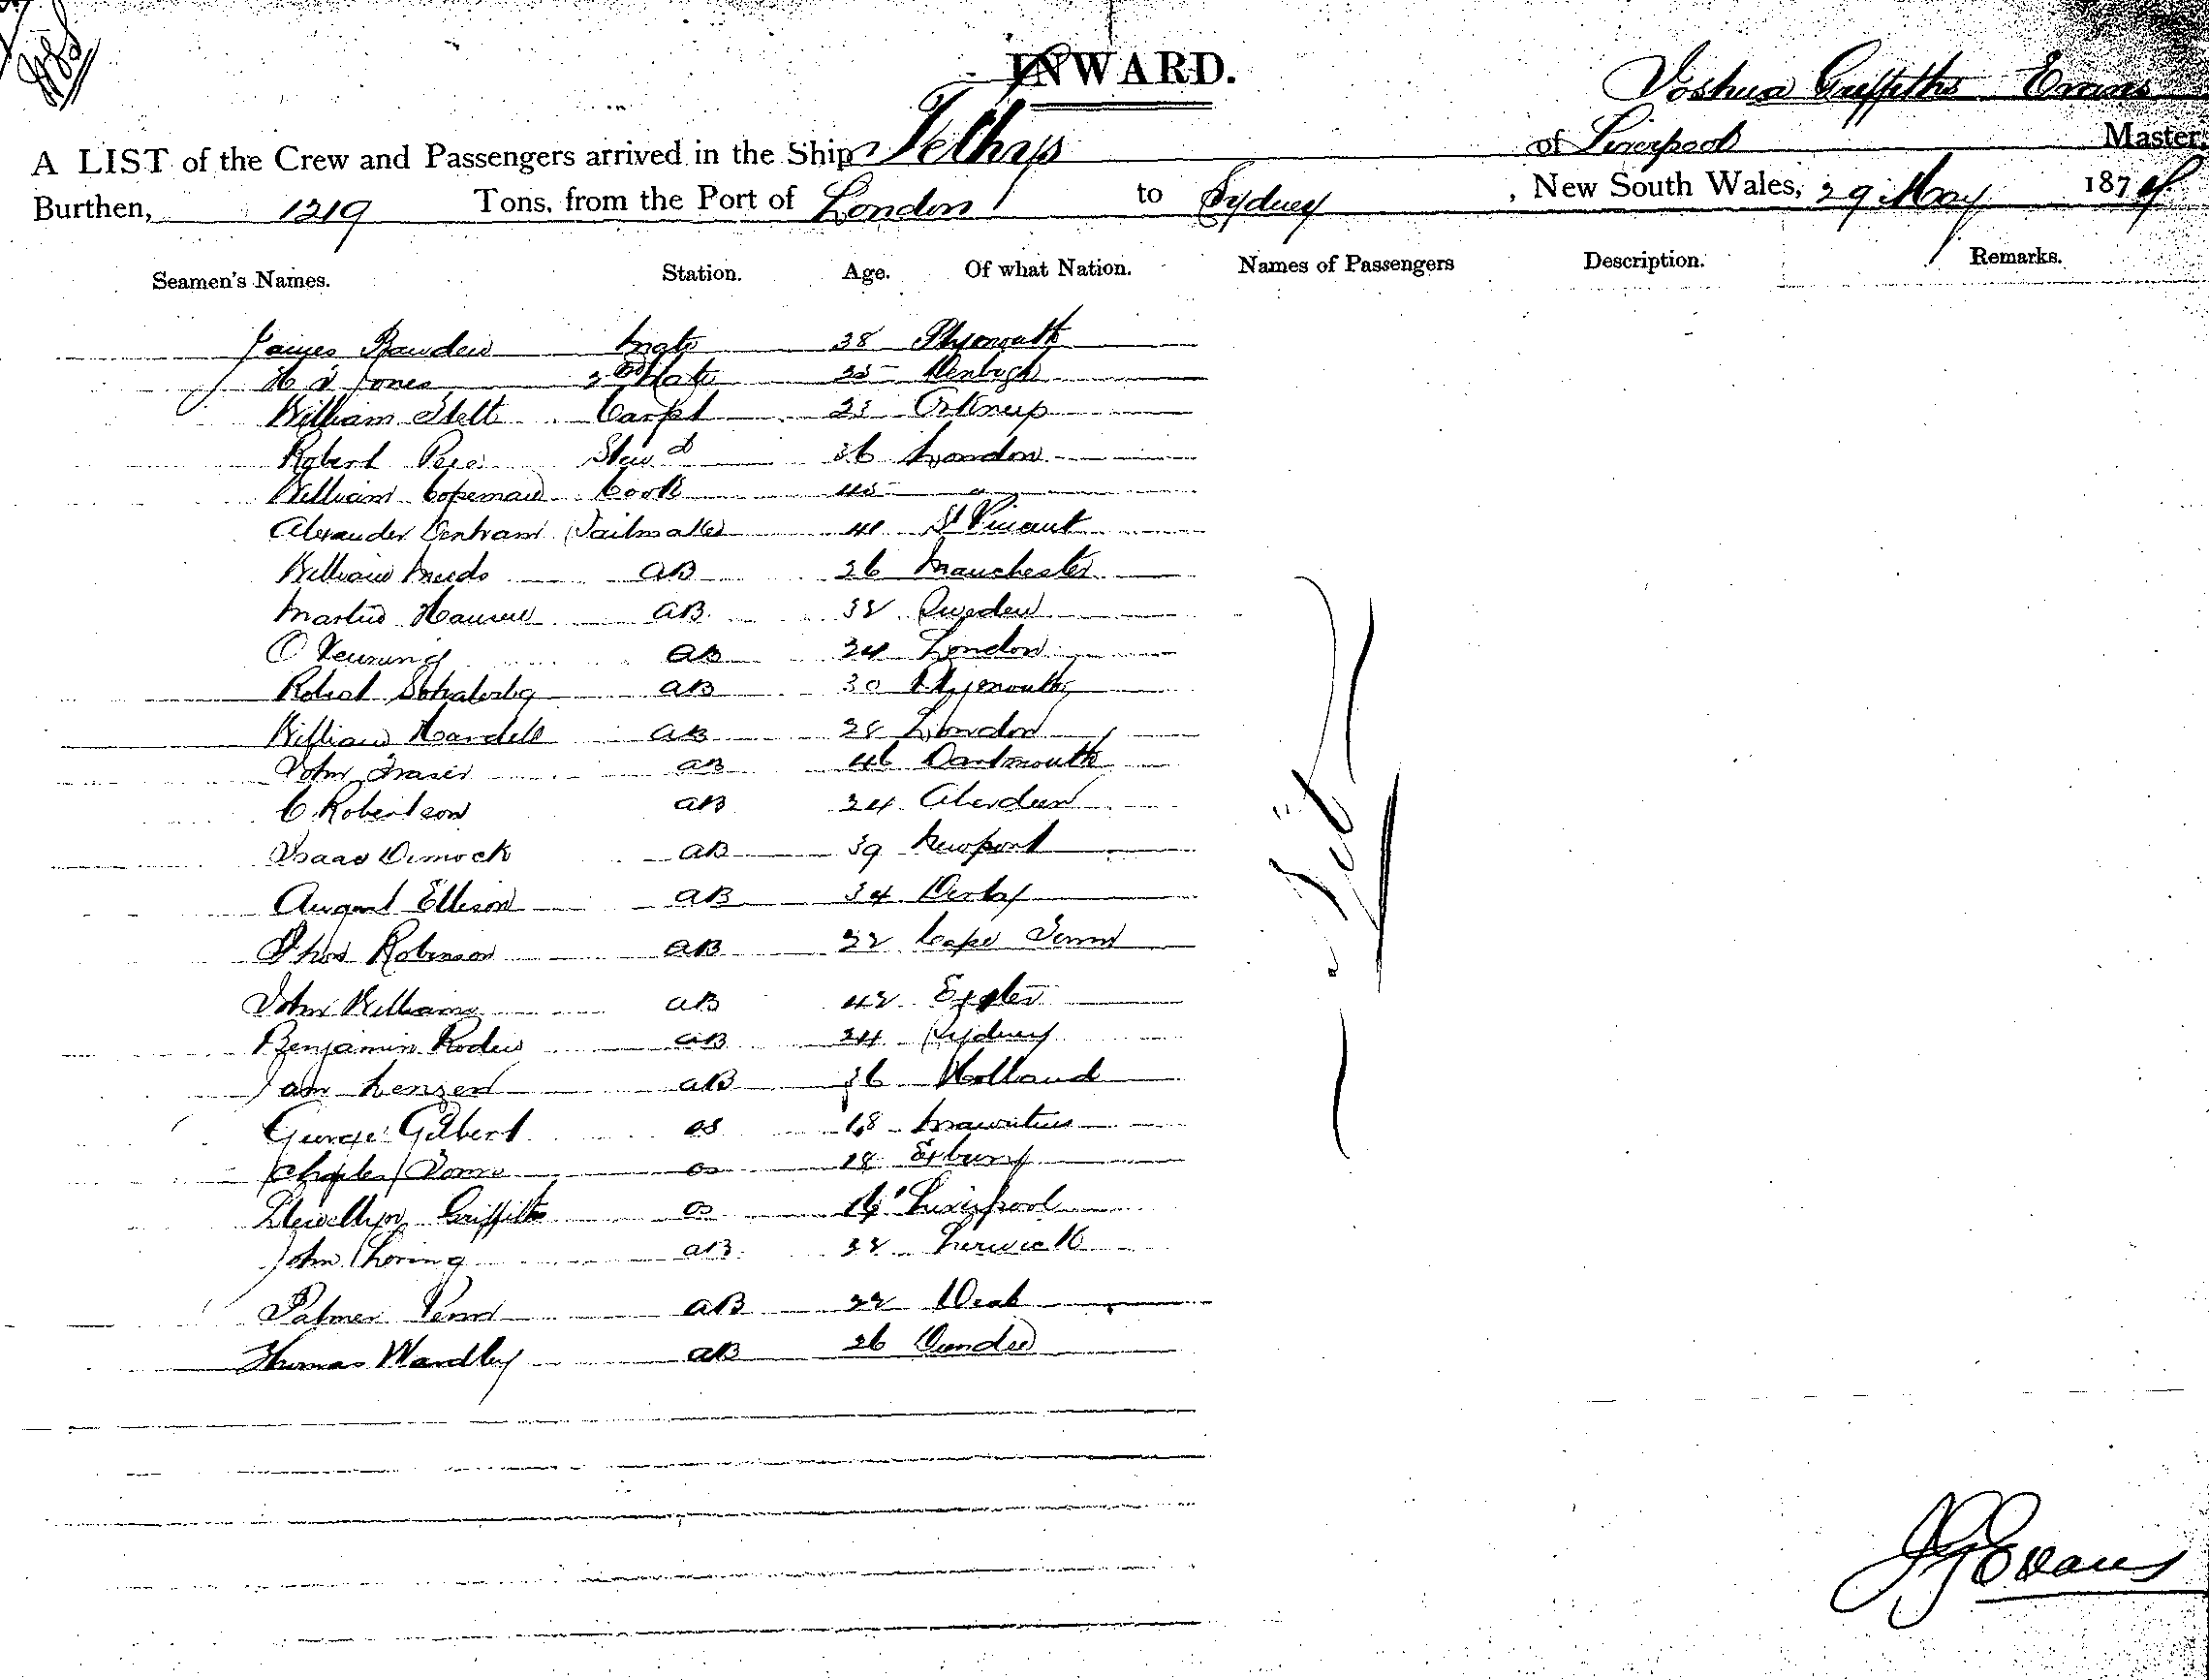 INWARD.
Joshua Griffiths Evans
A LIST of the Crew and Passengers arrived in the Ship Tethys of Liverpool Master,
Burthen, 1219 Tons, from the Port of London to Sydney, New South Wales, 29 May 187
Seamen's Names. Station. Age. Of what Nation. Names of Passengers Description. Remarks.
James Bawden Mate 38 Plymouth
Jones 2nd Mate Denbigh
William Carpt 23 Orkney
Robert Stewd 36 London
William Copeman Cook 45 "
Alexander Sailmaker 41 St Vincent
William AB 26 Manchester
Martin AB 32 Sweden
O AB 24 London
Robert AB 30 Plymouth
William AB 28 London
John Fraser AB 46 Dartmouth
C Robertson AB 24 Aberdeen
Isaac Dimock AB 39 Newport
August Ellison AB 34 Derby
Thos Robinson AB 22 Cape Town
John Williams AB 42 Exeter
Benjamin AB 24 Sydney
Jan AB 36 Holland
George Gilbert OS 18 Mauritius
Charles OS 18
Llewellyn Griffiths OS 16 Liverpool
John AB 32 Lerwick
Palmer Penn AB 22 Deal
Thomas Wardley AB 26 Dundee
J G Evans